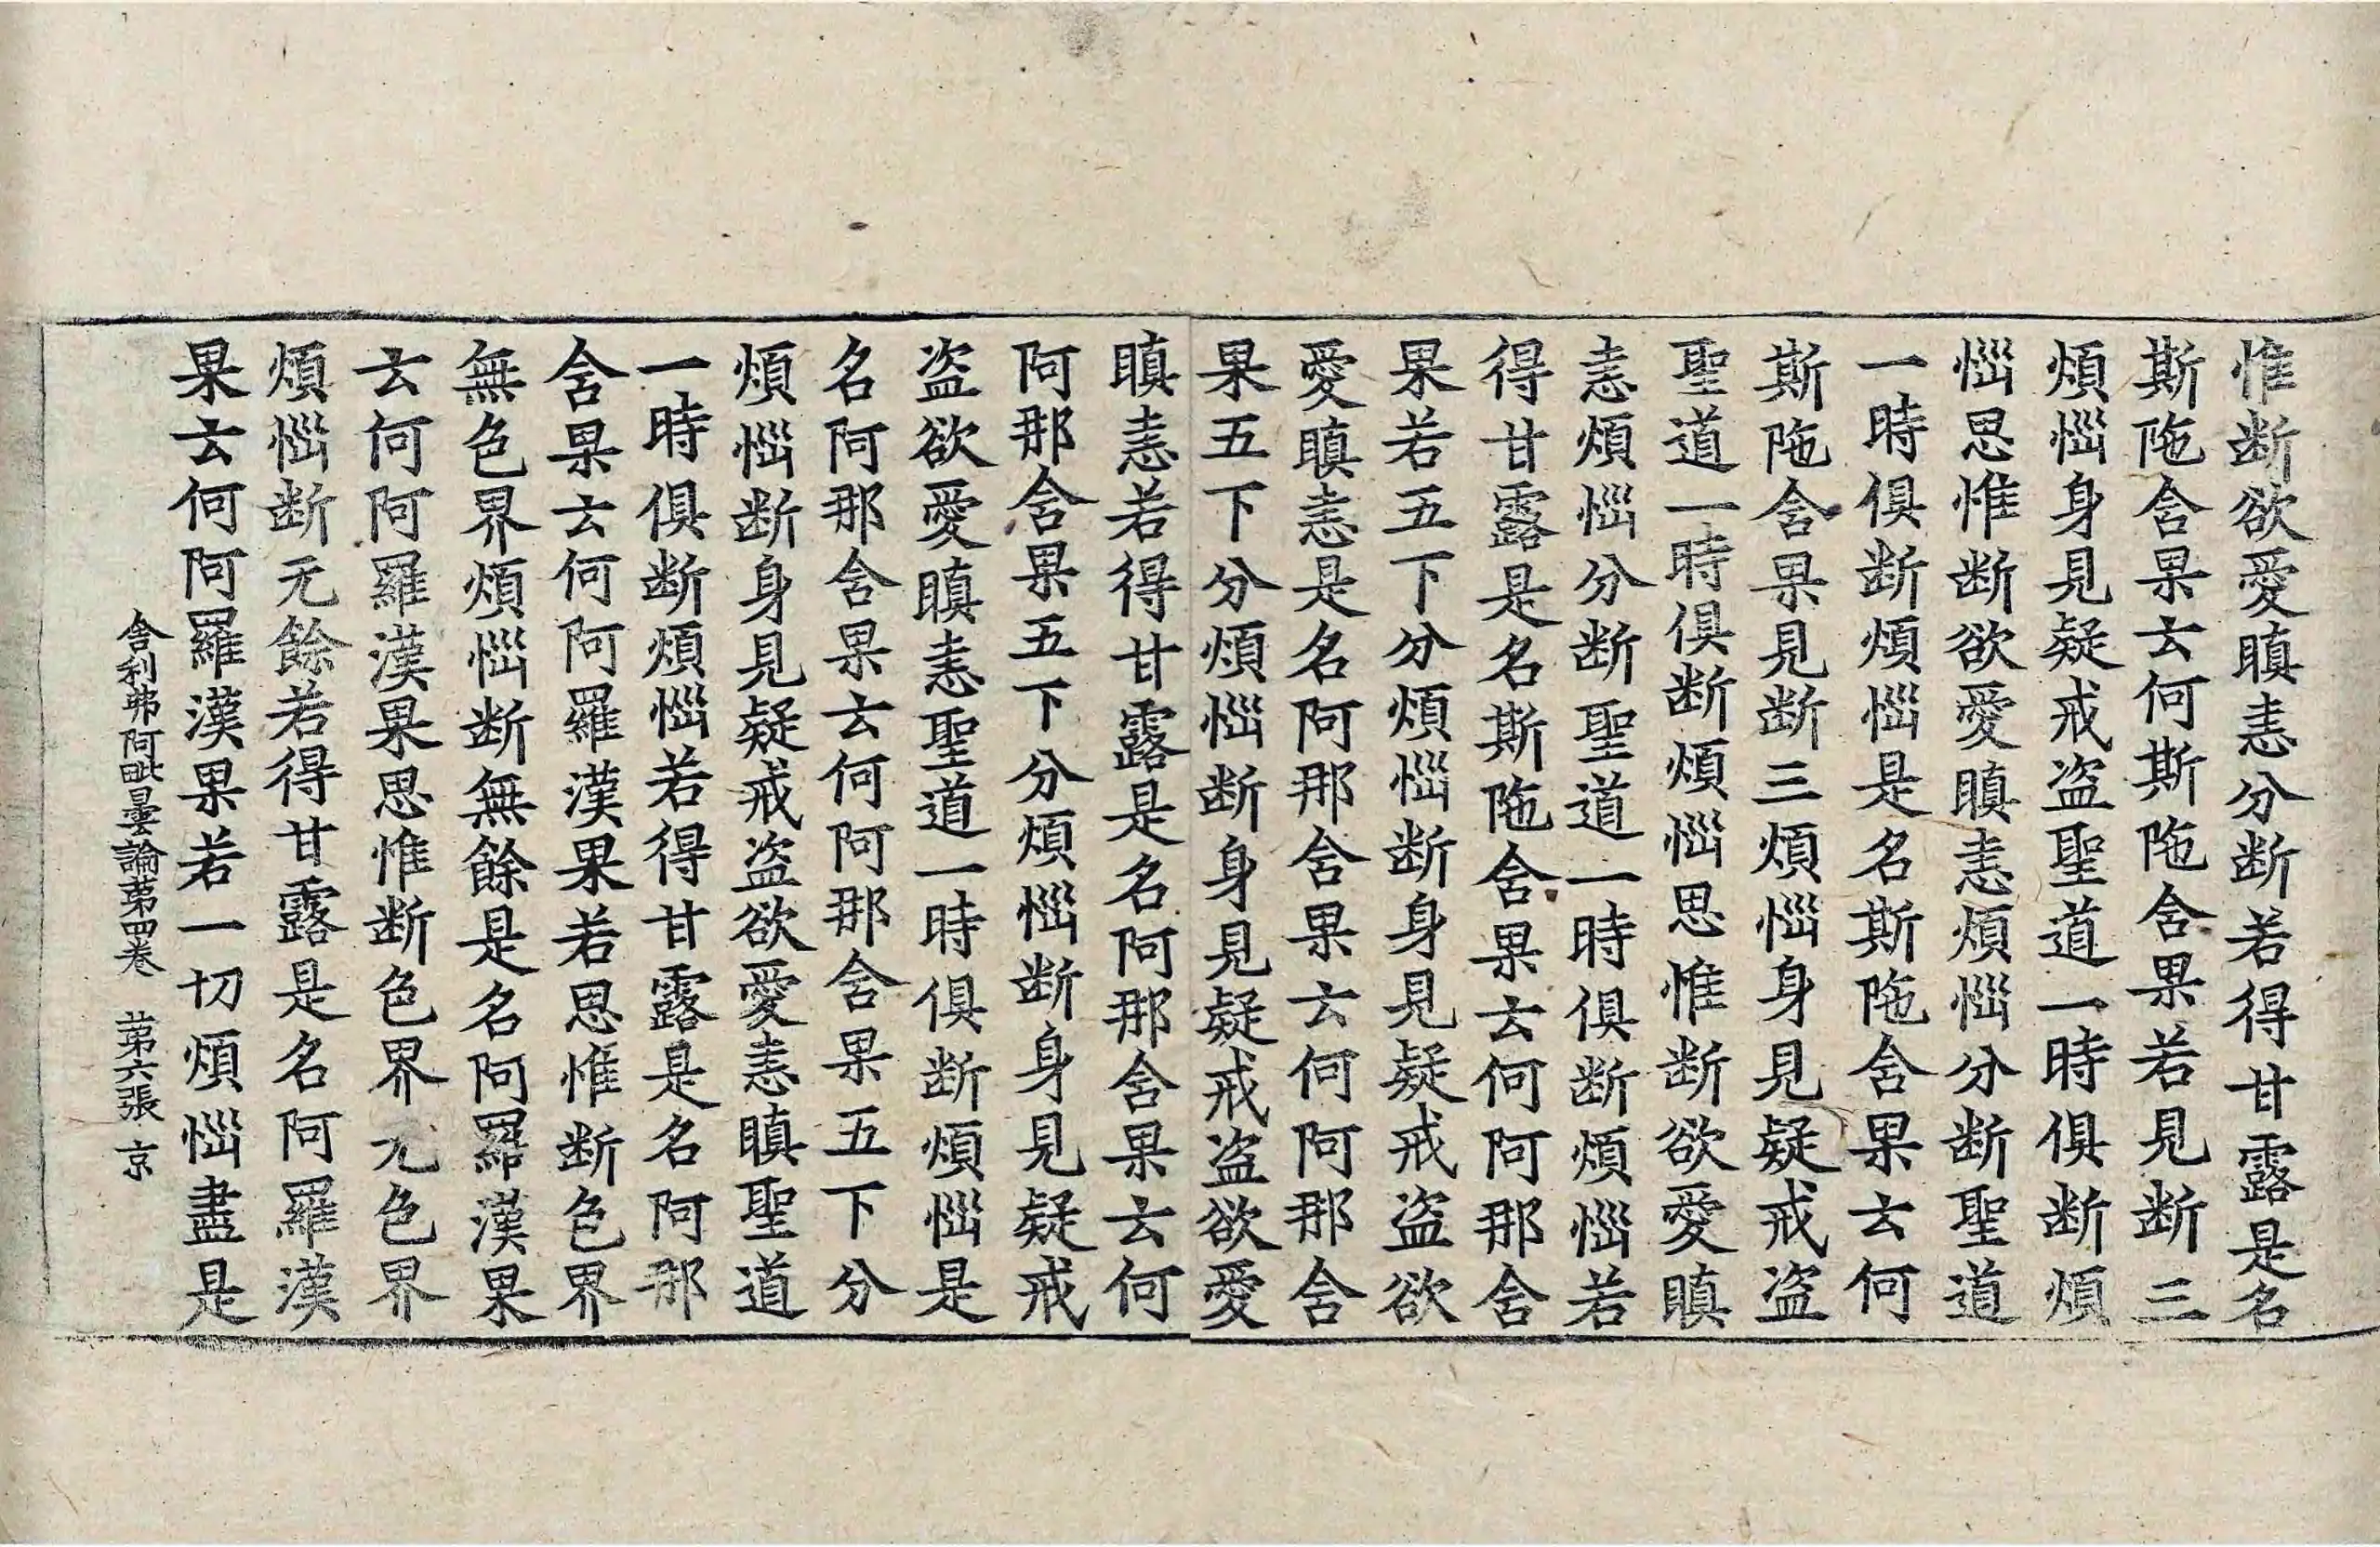 惟断欲愛瞋恚分断若得甘露是名
斯陁含果云何斯陁含果若見断三
煩惱身見疑戒盗聖道一時俱断煩
惱思惟断欲愛瞋恚煩惱分断聖道
一時俱断煩惱是名斯陁含果云何
斯陁含果見断三煩惱身見疑戒盗
聖道一時俱断煩惱思惟断欲愛瞋
恚煩惱分断聖道一時俱断煩惱若
得甘露是名斯陁含果云何阿那含
果若五下分煩惱断身見疑戒盗欲
愛瞋恚是名阿那含果云何阿那含
果五下分煩惱断身見疑戒盗欲愛
瞋恚若得甘露是名阿那含果云何
阿那含果五下分煩惱断身見疑戒
盗欲愛瞋恚聖道一時俱断煩惱是
名阿那含果云何阿那含果五下分
煩惱断身見疑戒盗欲愛恚瞋聖道
一時俱断煩惱若得甘露是名阿那
含果云何阿羅漢果若思惟断色界
無色界煩惱断無餘是名阿羅漢果
云何阿羅漢果思惟断色界无色界
煩惱断无餘若得甘露是名阿羅漢
果云何阿羅漢果若一切煩惱盡是
舍利弗阿毗曇論苐四卷 苐六張 京